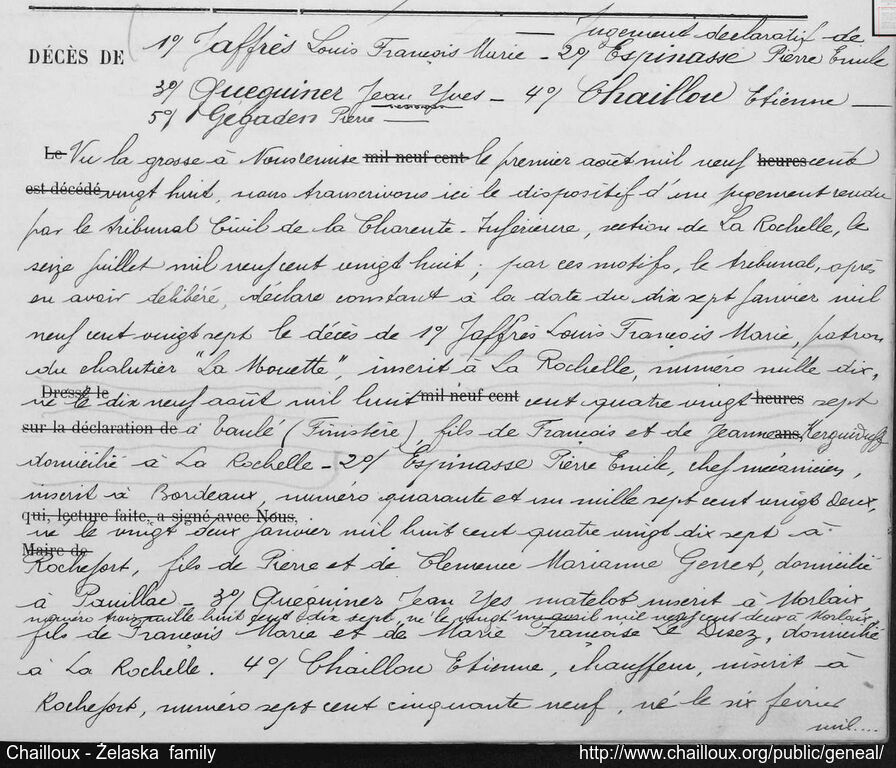 Jugement déclaratif de
DÉCÈS DE 1º/ Jaffrès Louis François Marie - 2º/ Espinasse Pierre Emile
3º/ Queguiner Jean Yves - 4º/ Chaillou Etienne -
5º/ Gégaden Pierre
Le Vu la grosse à Nous remise mil neuf cent le premier août mil neuf heures cent
est décédé vingt huit, nous transcrivons ici le dispositif d'un jugement rendu
par le tribunal Civil de la Charente-Inférieure, section de La Rochelle, le
seize juillet mil neuf cent vingt huit ; par ces motifs, le tribunal, après
en avoir délibéré, déclare constant à la date du dix sept janvier mil
neuf cent vingt sept le décès de 1º/ Jaffrès Louis François Marie, patron
du chalutier "La Mouette", inscrit à La Rochelle, numéro mille dix,
Dressé le
né le dix neuf août mil huit mil neuf cent cent quatre vingt heures sept
sur la déclaration de à Taulé (Finistère), fils de François et de Jeanne ans, Kerguiduff
domicilié à La Rochelle - 2º/ Espinasse Pierre Emile, chef mécanicien,
inscrit à Bordeaux, numéro quarante et un mille sept cent vingt deux,
qui, lecture faite, a signé avec Nous,
né le vingt deux janvier mil huit cent quatre vingt dix sept à
Maire de
Rochefort, fils de Pierre et de Clemence Marianne Genet, domicilié
à Pauillac - 3º/ Quéguiner Jean Yves matelot inscrit à Morlaix
numéro trois mille huit cent dix sept, né le vingt un avril mil neuf cent deux à Morlaix
fils de François Marie et de Marie Françoise Le Disez, domicilié
à La Rochelle. 4º/ Chaillou Etienne, chauffeur, inscrit à
Rochefort, numéro sept cent cinquante neuf, né le six février
mil....
Chailloux - Želaska family
http://www.chailloux.org/public/geneal/